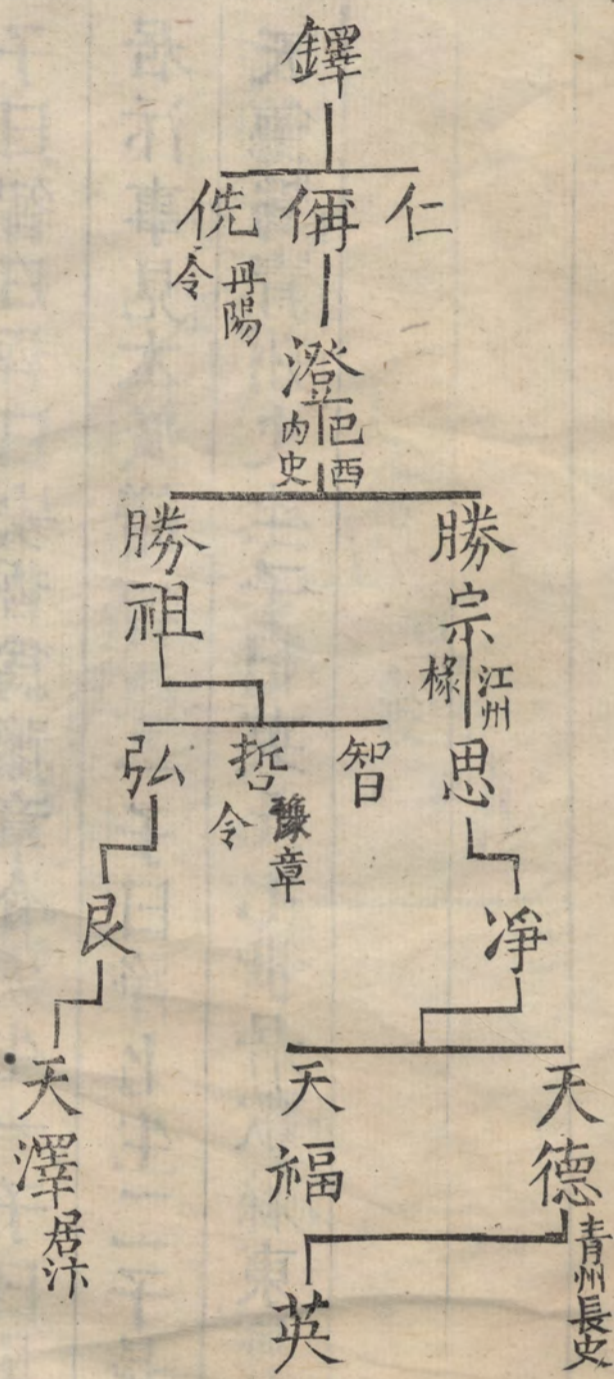 鐸
仁
偁
侁
丹陽
令
澄
巴西
内史
勝宗
江州
椽
勝祖
思
智
哲
豫章
令
弘
淨
艮
天德
青州長史
天福
天澤
居汴
英